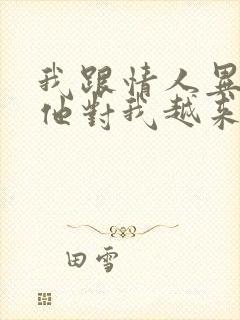 我跟情人異
他對我越來
田雪